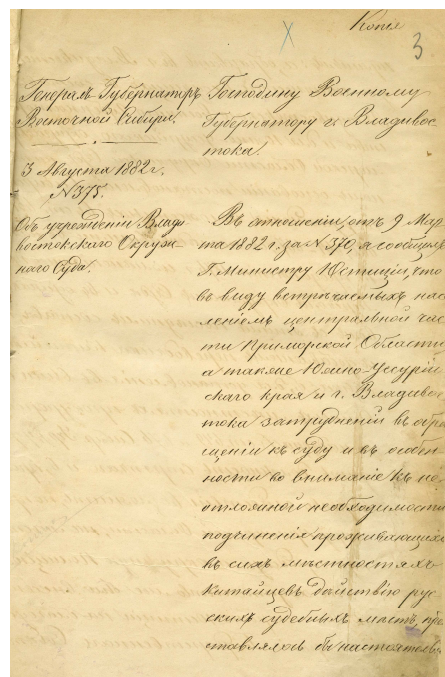 Копія
3
Генералъ Губернаторъ
Восточной Сибири.
3 Августа 1882 г.
№ 375.
Объ учрежденіи Влади-
востокского Окруж-
наго Суда.
Господину Военному
Губернатору г. Владивос-
тока.
Въ отношеніи, отъ 9 Мар-
та 1882 г. за № 370, я сообщилъ
Г. Министру Юстиціи, что
въ виду встрѣчаемыхъ насе
леніемъ центральной час
ти Приморской Области
а также Южно-Уссурій
скаго края и г. Владивос
тока затрудненій въ обра
щеніи къ суду и въ особен
ности во вниманіе къ не
отложной необходимости
подчиненія проживающихъ
въ сихъ мѣстностяхъ
Китайцевъ дѣйствію рус-
скихъ судебныхъ мѣстъ, пре
ставлялось бы настоятель